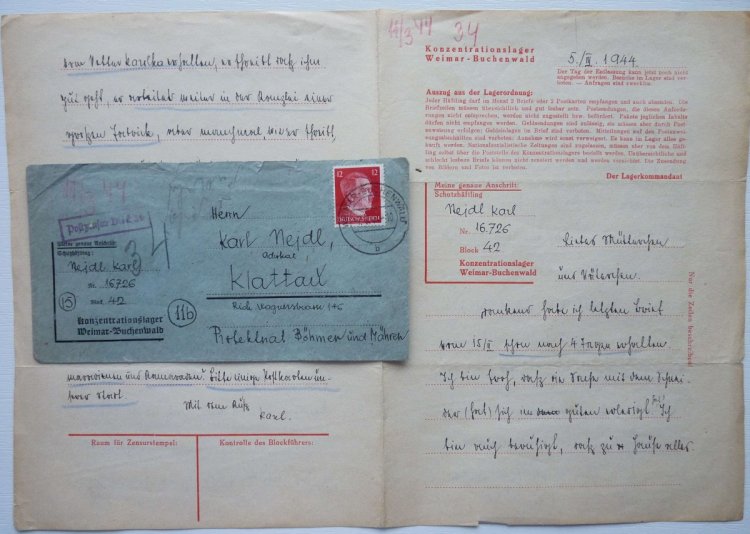 vom Vetter Karlka erhalten, er schreibt daß ihm
gut geht, er arbeitet weiter in der Kanzlei einer
großen Fabrik, aber manchmal wieder schreibt,
Herrn
Karl Nejdl,
Advokat
Klattau
Rich. Wagnerstrasse 145
Protektorat Böhmen und Mähren
12 12
Meine genaue Anschrift:
Schutzhäftling:
Nejdl Karl
Nr. 16726
Block 42
Konzentrationslager
Weimar-Buchenwald
15
11b
34
und Kameraden. Bitte einige Postkarten
Mit dem Kuß
Karl.
Raum für Zensurstempel:
Kontrolle des Blockführers:
15/3 44
34
Konzentrationslager
Weimar-Buchenwald
5./III. 1944.
Der Tag der Entlassung kann jetzt noch nicht
angegeben werden. Besuche im Lager sind ver-
boten. — Anfragen sind zwecklos.
Auszug aus der Lagerordnung:
Jeder Häftling darf im Monat 2 Briefe oder 2 Postkarten empfangen und auch absenden. Die
Briefzeilen müssen übersichtlich und gut lesbar sein. Postsendungen, die diesen Anforde-
rungen nicht entsprechen, werden nicht zugestellt bzw. befördert. Pakete jeglichen Inhalts
dürfen nicht empfangen werden. Geldsendungen sind zulässig, sie müssen aber durch Post-
anweisung erfolgen; Geldeinlagen im Brief sind verboten. Mitteilungen auf den Postanwei-
sungsabschnitten sind verboten; Annahme wird sonst verweigert. Es kann im Lager alles ge-
kauft werden. Nationalsozialistische Zeitungen sind zugelassen, müssen aber von dem Häft-
ling selbst über die Poststelle des Konzentrationslagers bestellt werden. Unübersichtliche und
schlecht lesbare Briefe können nicht zensiert werden und werden vernichtet. Die Zusendung
von Bildern und Fotos ist verboten.
Der Lagerkommandant
Meine genaue Anschrift:
Schutzhäftling
Nejdl Karl
Nr. 16.726
Block 42
Konzentrationslager
Weimar-Buchenwald
Liebes Mütterchen
und Väterchen.
Dankend habe ich letzten Brief
vom 15/II schon nach 4 Tagen erhalten.
Ich bin froh, daß die Sache mit dem Schnei-
der (hat) sich im guten erledigt. Ich
bin auch beruhigt, daß zu Hause alles
Nur die Zeilen beschreiben!